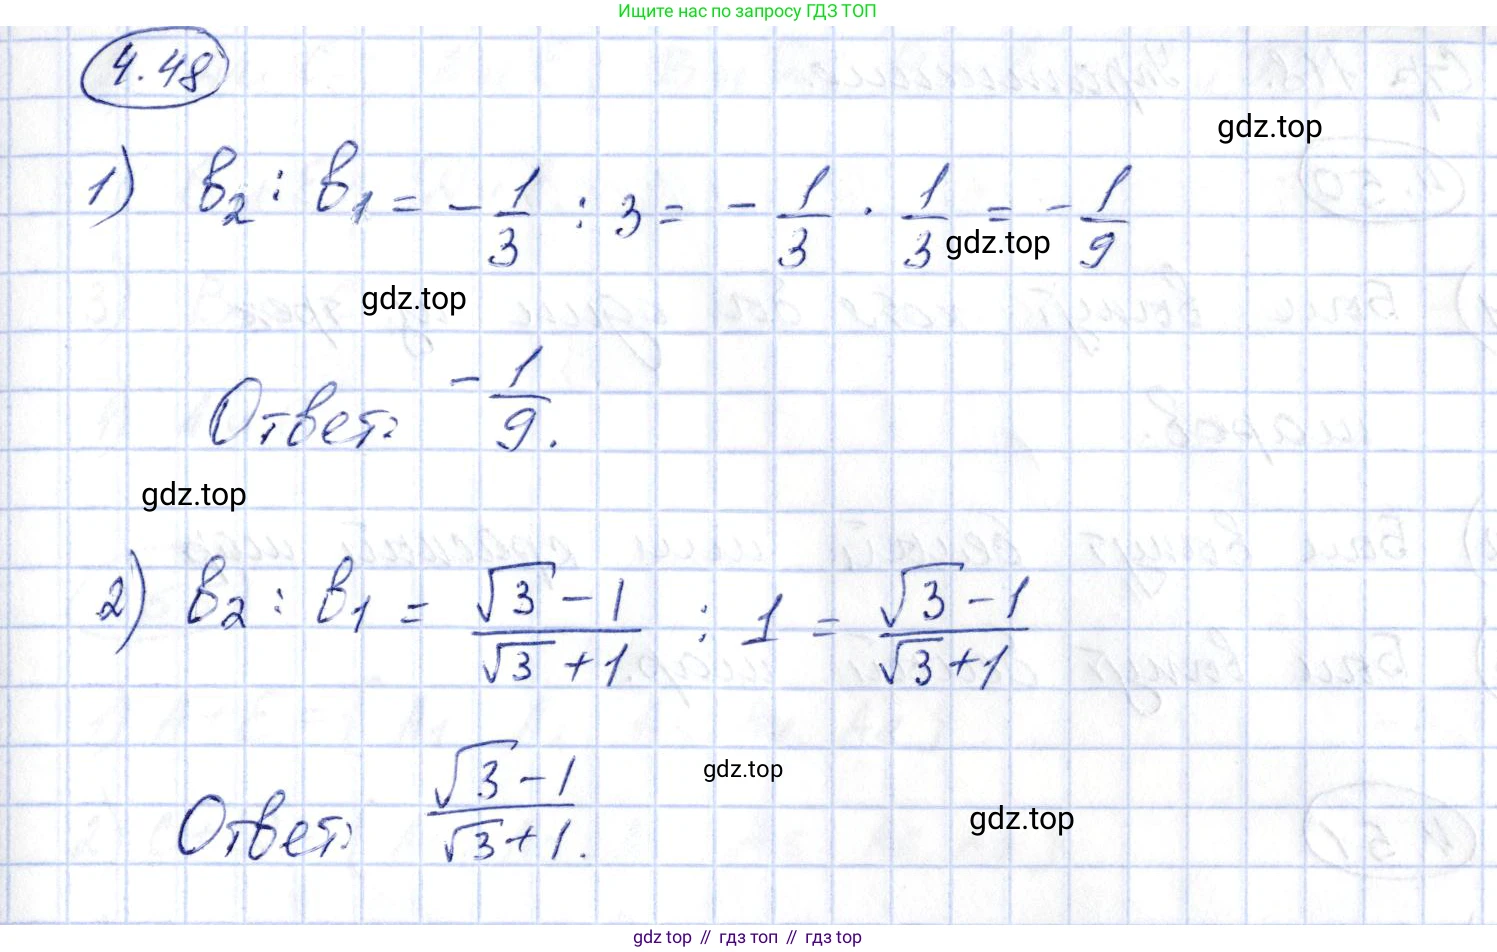 Ищите нас по запросу ГДЗ ТОП
4.48
gdz.top
1) b₂ : b₁ = -1/3 : 3 = -1/3 · 1/3 = -1/9
gdz.top
gdz.top
Ответ: -1/9.
gdz.top
2) b₂ : b₁ = (√3 - 1)/(√3 + 1) : 1 = (√3 - 1)/(√3 + 1)
gdz.top
Ответ: (√3 - 1)/(√3 + 1).
gdz.top
gdz top // гдз топ // гдз top